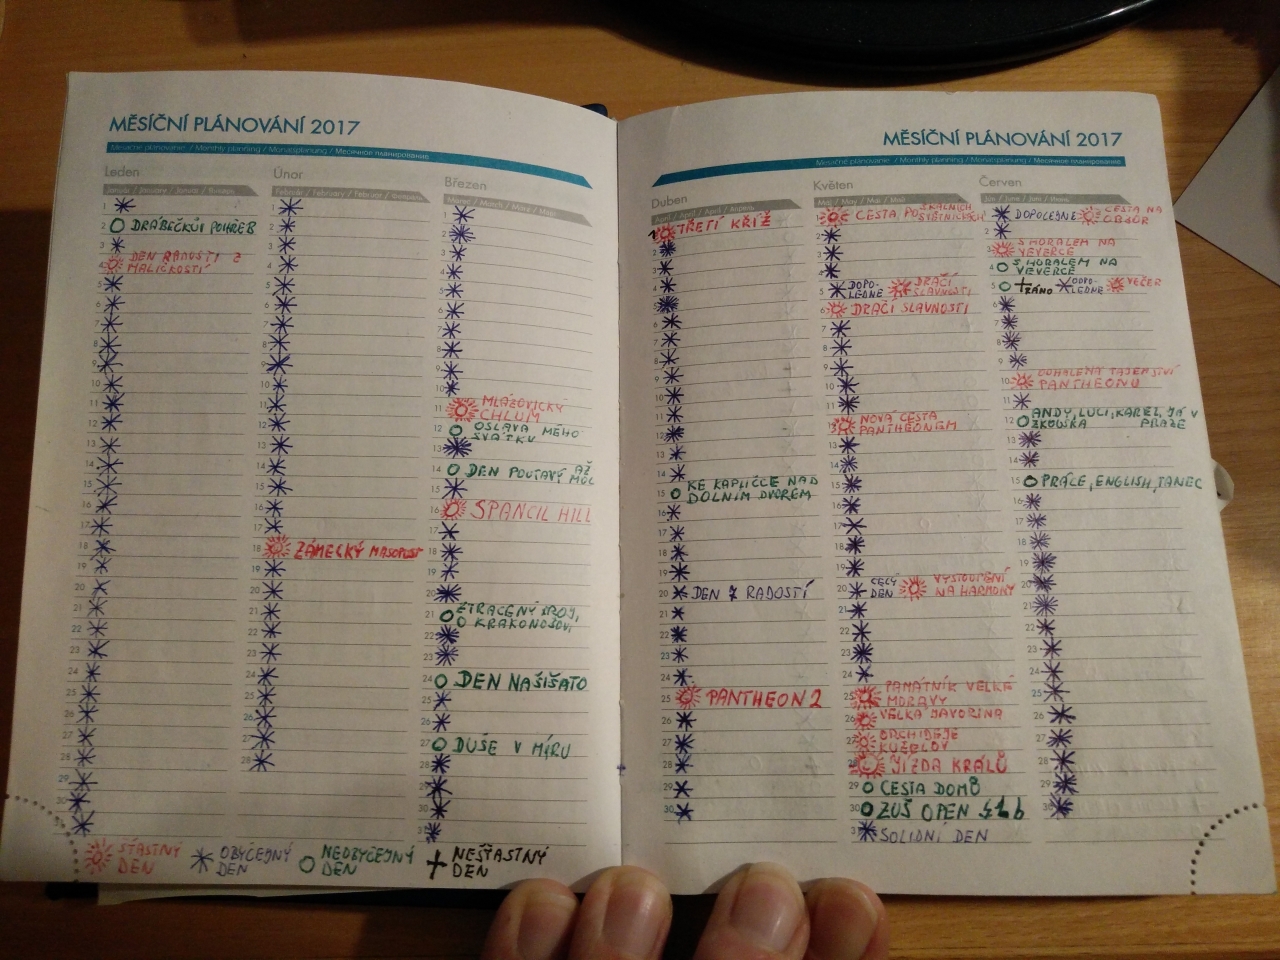 MĚSÍČNÍ PLÁNOVÁNÍ 2017
Mesačné plánovanie / Monthly planning / Monatsplanung / Месячное планирование
Leden
Január / January / Januar / Январь
1
2 DRÁBEČKŮV POHŘEB
3
4 DEN RADOSTI Z
MALIČKOSTÍ
5
6
7
8
9
10
11
12
13
14
15
16
17
18
19
20
21
22
23
24
25
26
27
28
29
30
31
Únor
Február / February / Februar / Февраль
1
2
3
4
5
6
7
8
9
10
11
12
13
14
15
16
17
18 ZÁMECKÝ MASOPUST
19
20
21
22
23
24
25
26
27
28
Březen
Marec / March / März / Март
1
2
3
4
5
6
7
8
9
10
11 MLÁZOVICKÝ
CHLUM
12 OSLAVA MÉHO
SVÁTKU
13
14 DEN POUTAVÝ AŽ
MOC
15
16 SPANCIL HILL
17
18
19
20
21 ZTRACENÝ
O KRAKONOŠOVI
22
23
24 DEN NAŠIŠATO
25
26
27 DUŠE V MÍRU
28
29
30
31
ŠŤASTNÝ
DEN
OBYČEJNÝ
DEN
NEOBYČEJNÝ
DEN
NEŠŤASTNÝ
DEN
MĚSÍČNÍ PLÁNOVÁNÍ 2017
Mesačné plánovanie / Monthly planning / Monatsplanung / Месячное планирование
Duben
Apríl / April / April / Апрель
1 TŘETÍ KŘÍŽ
2
3
4
5
6
7
8
9
10
11
12
13
14
15 KE KAPLIČCE NAD
DOLNÍM DVOREM
16
17
18
19
20 DEN Z RADOSTÍ
21
22
23
24
25 PANTHEON 2
26
27
28
29
30
Květen
Máj / May / Mai / Май
1 CESTA PO SKALNÍCH
SVĚTNIČKÁCH
2
3
4
5 DOPO-
LEDNE DRAČÍ
SLAVNOSTI
6 DRAČÍ SLAVNOSTI
7
8
9
10
11
12 NOVÁ CESTA
PANTHEONEM
13
14
15
16
17
18
19
20 CELÝ
DEN VYSTOUPENÍ
NA HARMONY
21
22
23
24
25 PAMÁTNÍK VELKÉ
MORAVY
26 VELKÁ JAVOŘINA
27 ORCHIDEJE
KUŽELOV
28 JÍZDA KRÁLŮ
29 CESTA DOMŮ
30 ZUŠ OPEN
31 SOLIDNÍ DEN
Červen
Jún / June / Juni / Июнь
1 DOPOLEDNE CESTA NA
OBZOR
2
3 S HORALEM NA
VEVERCE
4 S HORALEM NA
VEVERCE
5 RÁNO ODPO-
LEDNE VEČER
6
7
8
9
10 ODHALENÁ TAJEMSTVÍ
PANTHEONU
11
12 ANDY, LUCI, KAREL, JÁ V
ZKOUŠKA PRAZE
13
14
15 PRÁCE, ENGLISH, TANEC
16
17
18
19
20
21
22
23
24
25
26
27
28
29
30